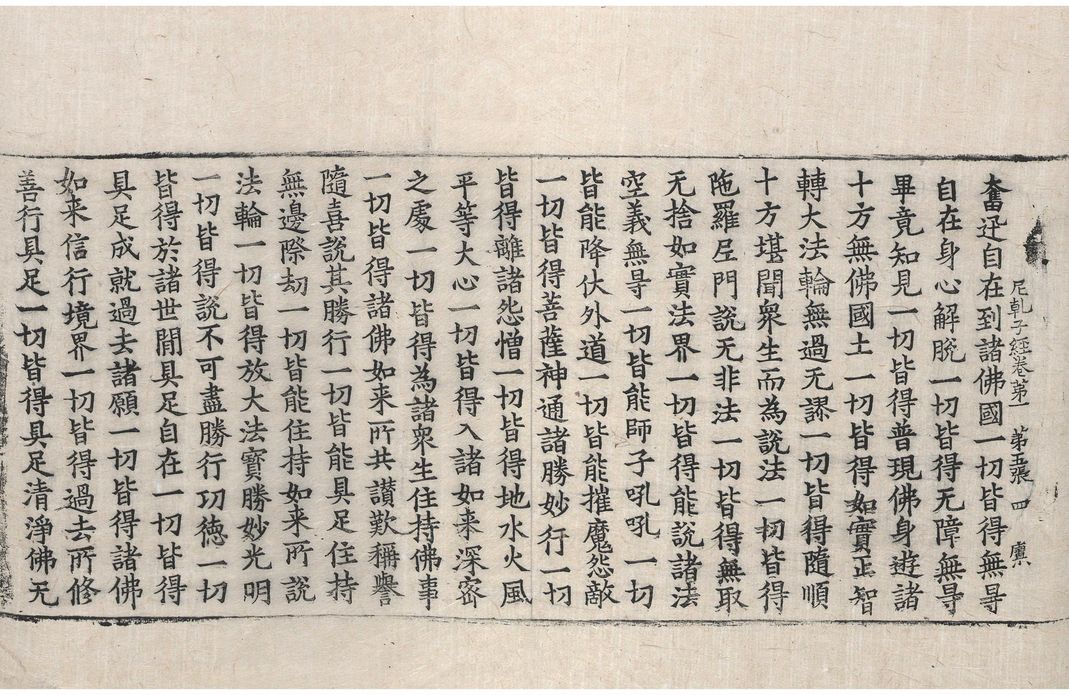 尼乹子經卷第一　第五張　四　虞
奮迅自在到諸佛國一切皆得無㝵
自在身心解脫一切皆得无障無㝵
畢竟知見一切皆得普現佛身遊諸
十方無佛國土一切皆得如實正智
轉大法輪無過无謬一切皆得隨順
十方堪聞衆生而為說法一切皆得
陁羅尼門說无非法一切皆得無取
无捨如實法界一切皆得能說諸法
空義無㝵一切皆能師子吼吼一切
皆能降伏外道一切皆能摧魔怨敵
一切皆得菩薩神通諸勝妙行一切
皆得離諸怨憎一切皆得地水火風
平等大心一切皆得入諸如来深密
之處一切皆得為諸衆生住持佛事
一切皆得諸佛如来所共讃歎稱譽
隨喜說其勝行一切皆能具足住持
無邊際劫一切皆能住持如来所說
法輪一切皆得放大法寶勝妙光明
一切皆得說不可盡勝行功徳一切
皆得於諸世間具足自在一切皆得
具足成就過去諸願一切皆得諸佛
如来信行境界一切皆得過去所修
善行具足一切皆得具足清淨佛无